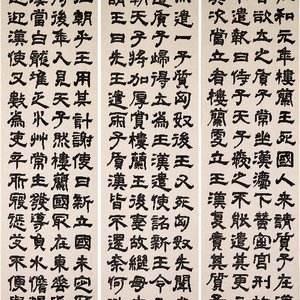 和元年樓蘭王死國人來請質子在
欲立之質子常坐漢灋下蠶室宮刑
遣報曰侍子天子愛之不能遣其更
其次當立者樓蘭更立王漢復責其質子
遣一子質匈奴後王又死匈奴先聞
遣質子歸得立為王漢遣使詔新王令
朝天子將加厚賞樓蘭王後妻故繼母
王曰先王遣兩子質漢皆不還奈何欲
朝乎王用其計謝使曰新立國未定
後年入見天子然樓蘭國冣在東垂
漢當白龍堆乏水草常主發導負水儋
迎漢使又數為吏卒所寇懲艾不便